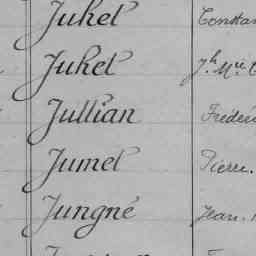 Juhel Constan
Juhel Jh Mie
Jullian Fréderi
Jumel Pierre.
Jungné Jean.